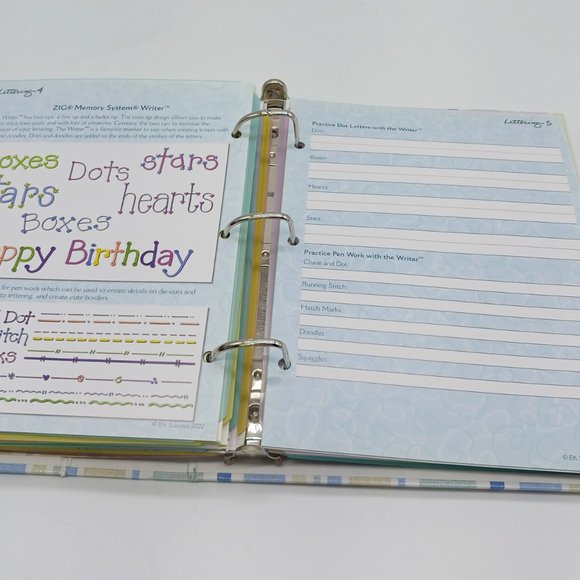 Lettering-4
ZIG® Memory System® Writer™
Writer™ has two tips, a fine tip and a bullet tip. The twin tip design allows you to make
thick lines easily and with lots of creativity. Combine the two tips to increase the
of your lettering. The Writer™ is a fantastic marker to use when creating letters with
and doodles. Dots and doodles are added to the ends of the strokes of the letters.
oxes
Dots
stars
tars
hearts
Boxes
ppy Birthday
for pen work which can be used to create details on die-cuts and
to lettering, and create cute borders.
Dot
itch
ks
© EK Success 2002
Lettering-5
Practice Dot Letters with the Writer™
Dots:
Boxes:
Hearts:
Stars:
Practice Pen Work with the Writer™
Chase and Dot:
Running Stitch:
Hatch Marks:
Doodles
Squiggles
© EK S